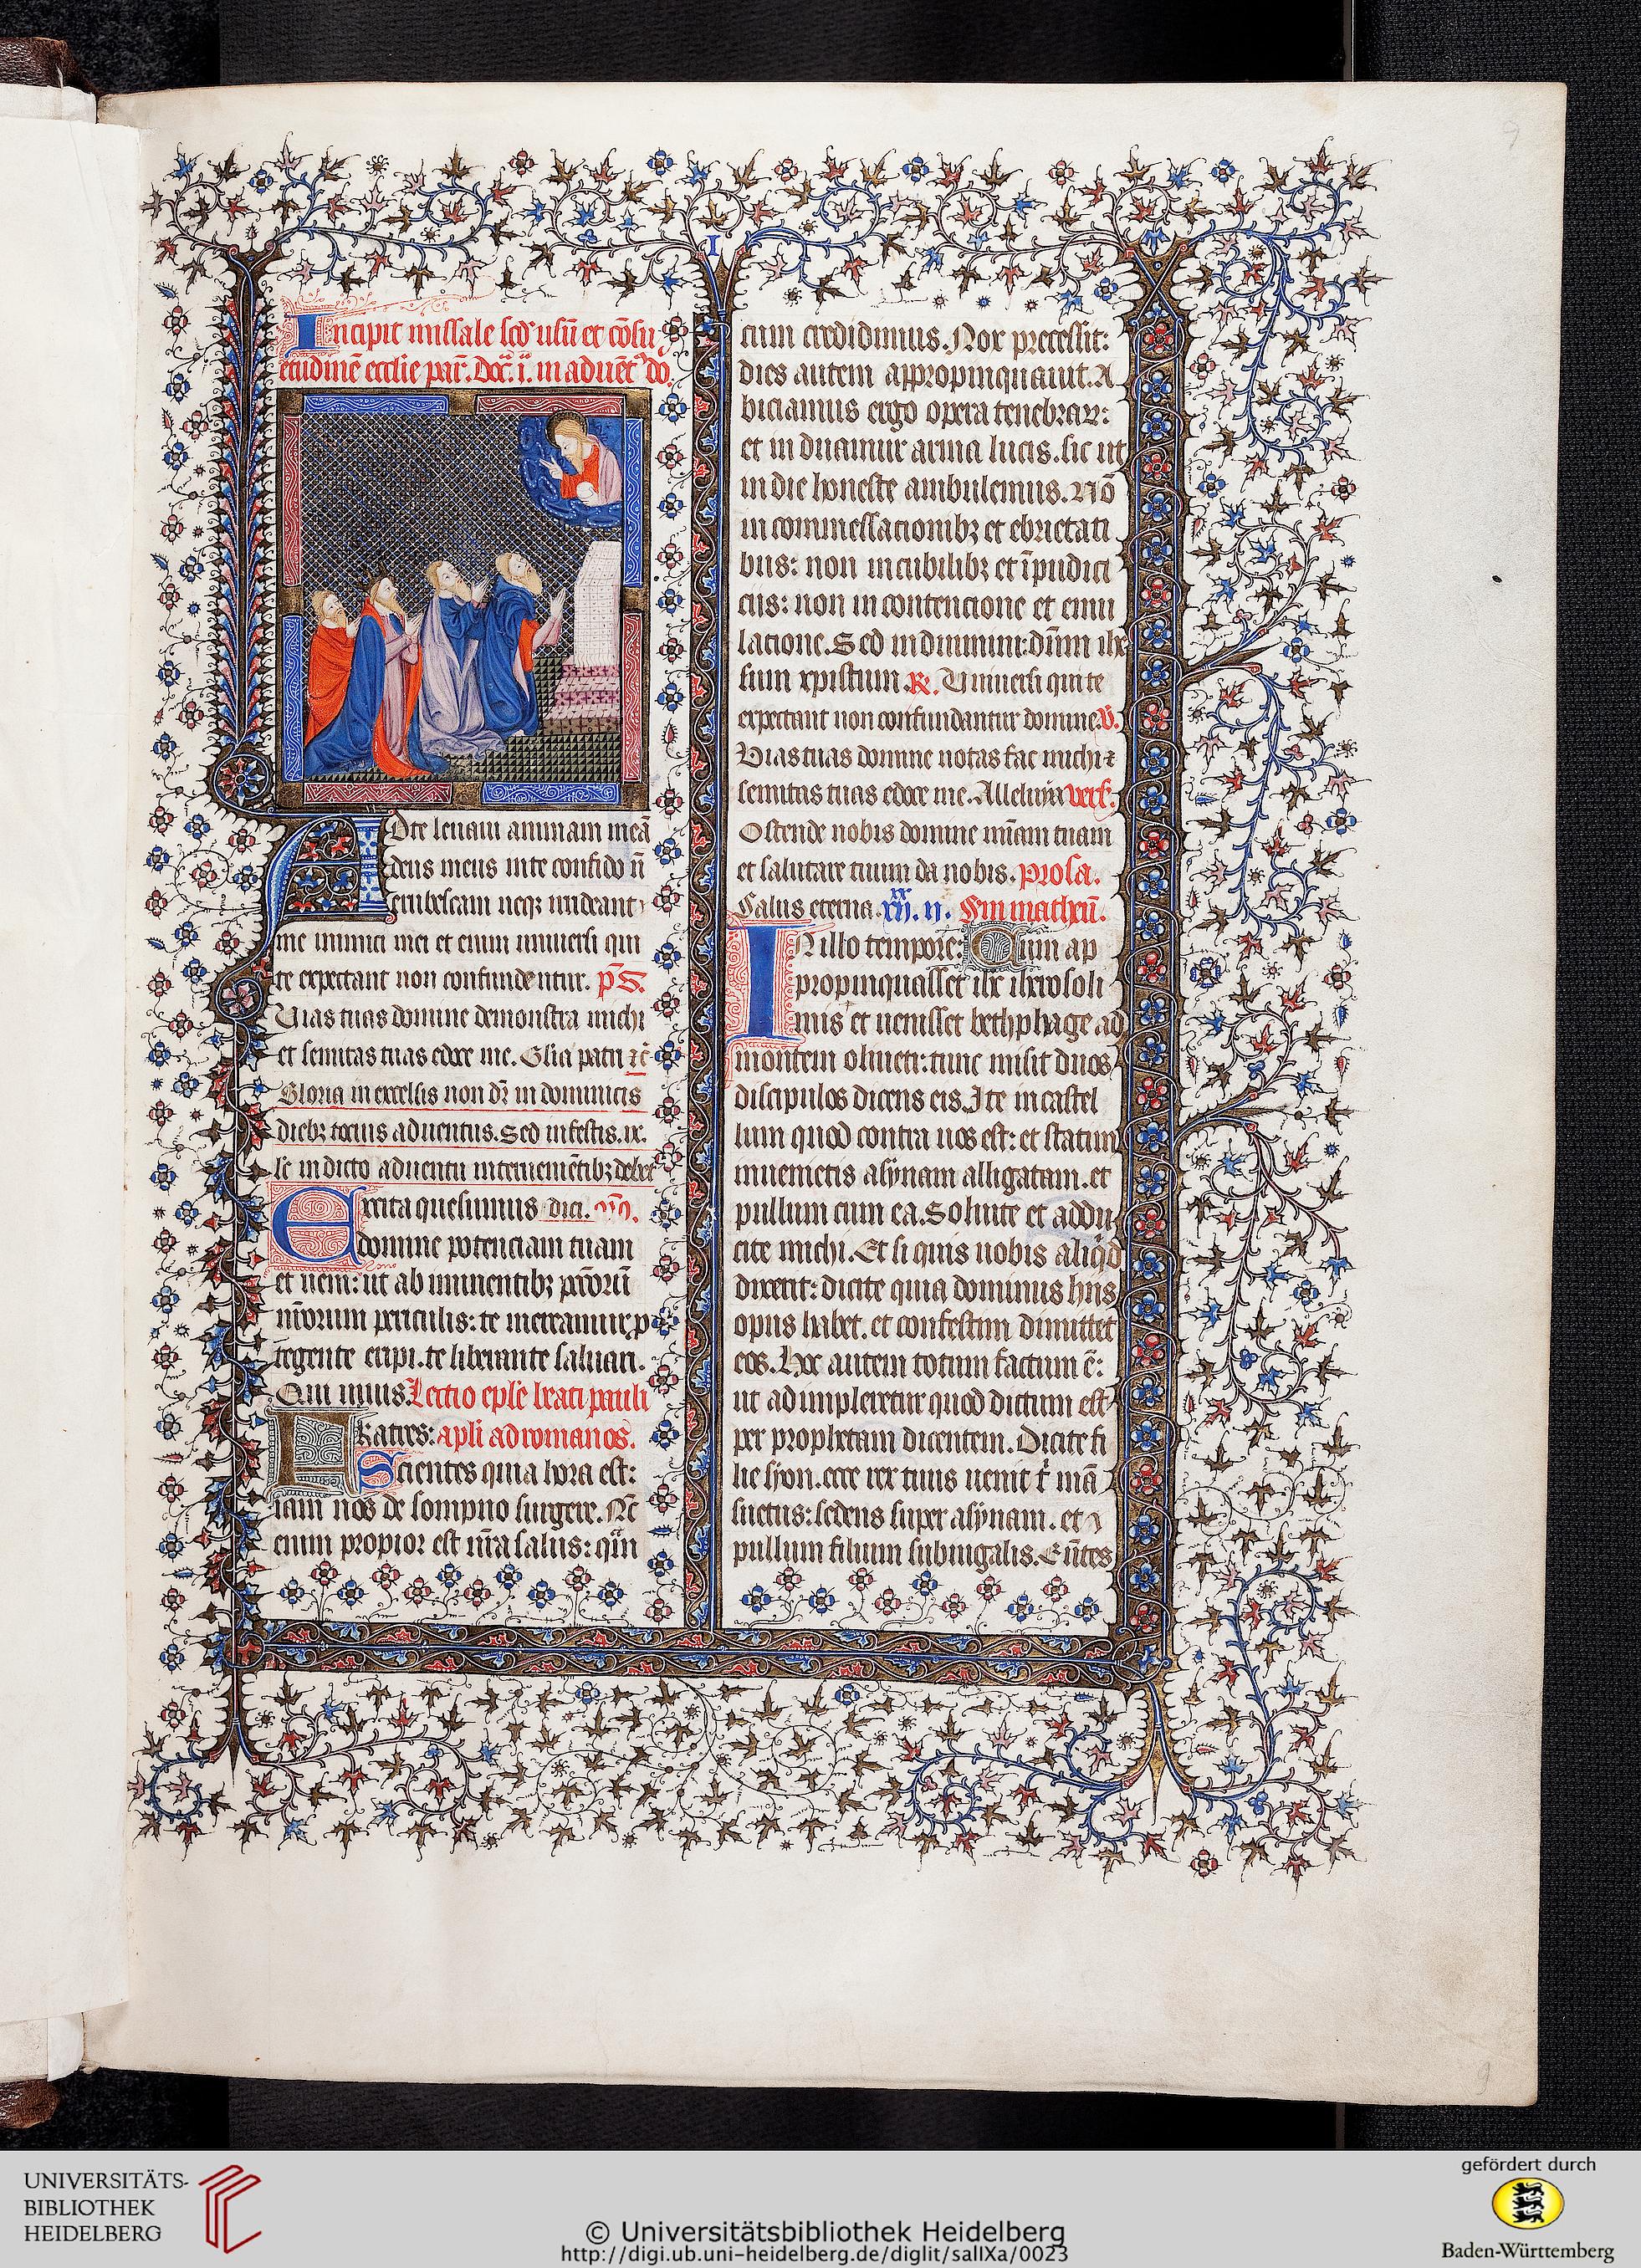 9
I
Incipit missale scd' usū et cōsu
etudinē ecclīe par̄. Dōc̄. i. in aduēt' do.
Ad te leuaui animam meā
deus meus in te confido n̄
erubescam neqꝫ irrideant
me inimici mei et enim uniuersi qui
te expectant non confundentur. p̄s.
Uias tuas domine demonstra michi
et semitas tuas edoce me. Glīa patri ⁊c̄
Gloria in excelsis non dr̄ in dominicis
diebꝫ tocius aduentus. Sed in festis .ix.
lc̄ in dicto aduentu interuenientibꝫ debet
Excita quesumus dici. or̄o.
domine potenciam tuam
et ueni: ut ab iminentibꝫ pctōrū
nr̄orum periculis: te mereamur p
tegente eripi. te liberante saluari.
Qui uiuis. Lectio eplē beati pauli
Fratres: apl̄i ad romanos.
Scientes quia hora est:
iam nos de sompno surgere. Nc̄
enim propior est nr̄a salus: qm̄
cum credidimus. Nox precessit:
dies autem appropinquauit. A
biciamus ergo opera tenebraꝝ:
et induamur arma lucis. sic ut
in die honeste ambulemus. Nō
in commessacionibꝫ et ebrietati
bus: non in cubilibꝫ et īpudici
ciis: non in contencione et emu
lacione. Sed induimini: dn̄m ihe
sum xpistum. ℟. Uniuersi qui te
expectant non confundantur domine. ℣.
Uias tuas domine notas fac michi ⁊
semitas tuas edoce me. Alleluya vers.
Ostende nobis domine mīam tuam
et salutare tuum da nobis. prosa.
Salus eterna. xxi. ii. Sm̄ matheū.
In illo tempore: Cum ap
propinquasset ihc iherosoli
mis et uenisset bethphage ad
montem oliueti: tunc misit duos
discipulos dicens eis. Ite in castel
lum quod contra uos est: et statim
inuenietis asynam alligatam. et
pullum cum ea. Soluite et addu
cite michi. Et si quis uobis aliqͥd
dixerit: dicite quia dominus hiis
opus habet. et confestim dimittet
eos. Hoc autem totum factum ē:
ut adimpleretur quod dictum est
per prophetam dicentem. Dicite fi
lie syon. ecce rex tuus uenit t̄ mā
suetus: sedens super asynam. et
pullum filium subiugalis. Eūtes
9
UNIVERSITÄTS-
BIBLIOTHEK
HEIDELBERG
© Universitätsbibliothek Heidelberg
http://digi.ub.uni-heidelberg.de/diglit/salIXa/0023
gefördert durch
Baden-Württemberg